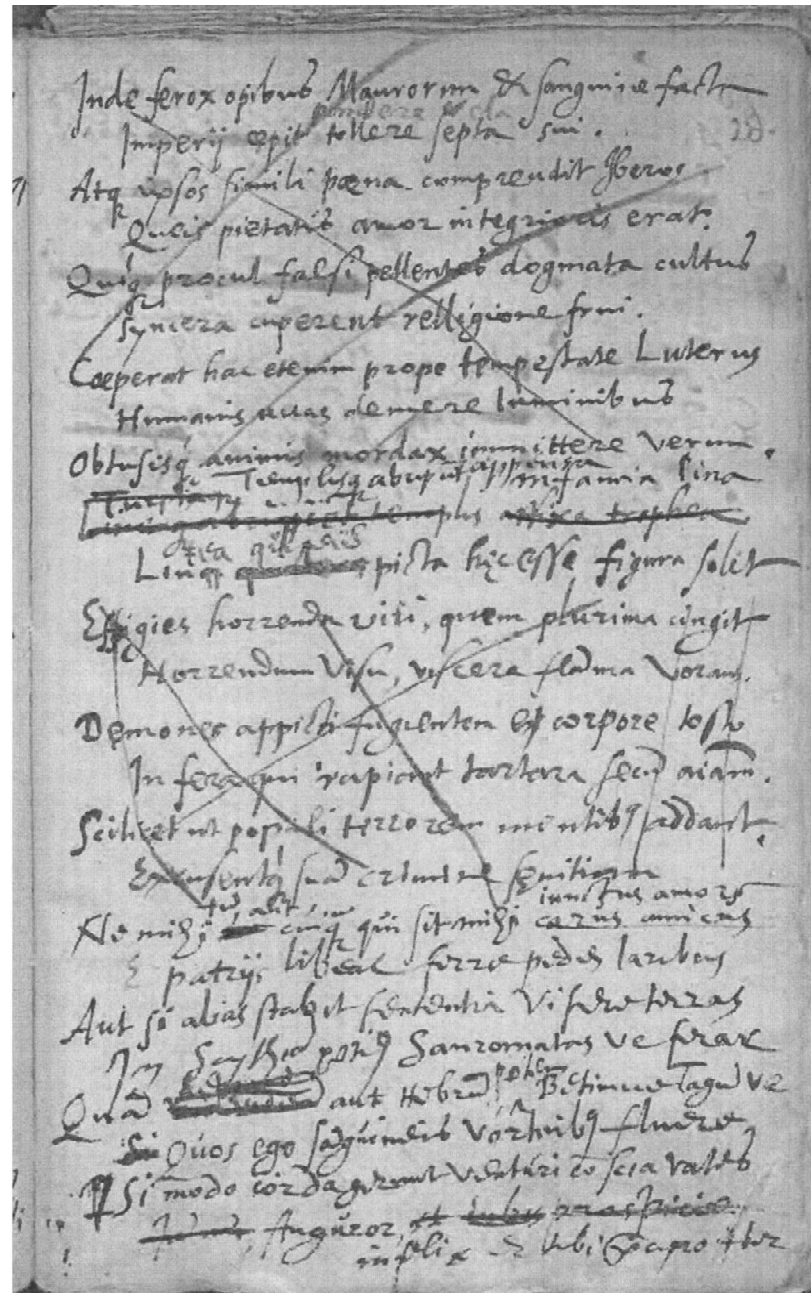 Inde ferox opibus Maurorum & sanguine facta
Imperij cepit tollere septa sui.
Atq ipsos simili pœna comprendit Iberos
Queis pietatis amor integrioris erat.
Quiq procul falsi pellentes dogmata cultus
Syncera cuperent relligione frui.
Cœperat hac etenim prope tempestate Luterus
Humanis demere luminibus
Obtusisq animis mordax immittere verum.
Templisq appensa infamia lina
templis affixa trophea
Lineaq picta hęc esse figura solet
Effigies horrenda viri, quem plurima cingit
Horrendum visu, viscera flāma vorans.
Dęmones appicti fugientem ex corpore tosto
In fera qui rapiant tartara secū aīam.
Scilicet ut populi terrorem mentibq addant.
Excusentq suā crimine sęvitiam
iunctus amore
Ne mihi cuiq qui sit mihi carus amicus
patrijs libeat ferre pedes laribus
Aut si alias stabit sententia visere terras
Scythas potiq Sauromatas ve ferax
Quā aut Hebrū petet Betimve Tagū ve
Quos ego sāguineis vorticibq fluere
Si modo corda gerunt venturi cōscia vates
Auguror, et prospicio
infelix tibi iter